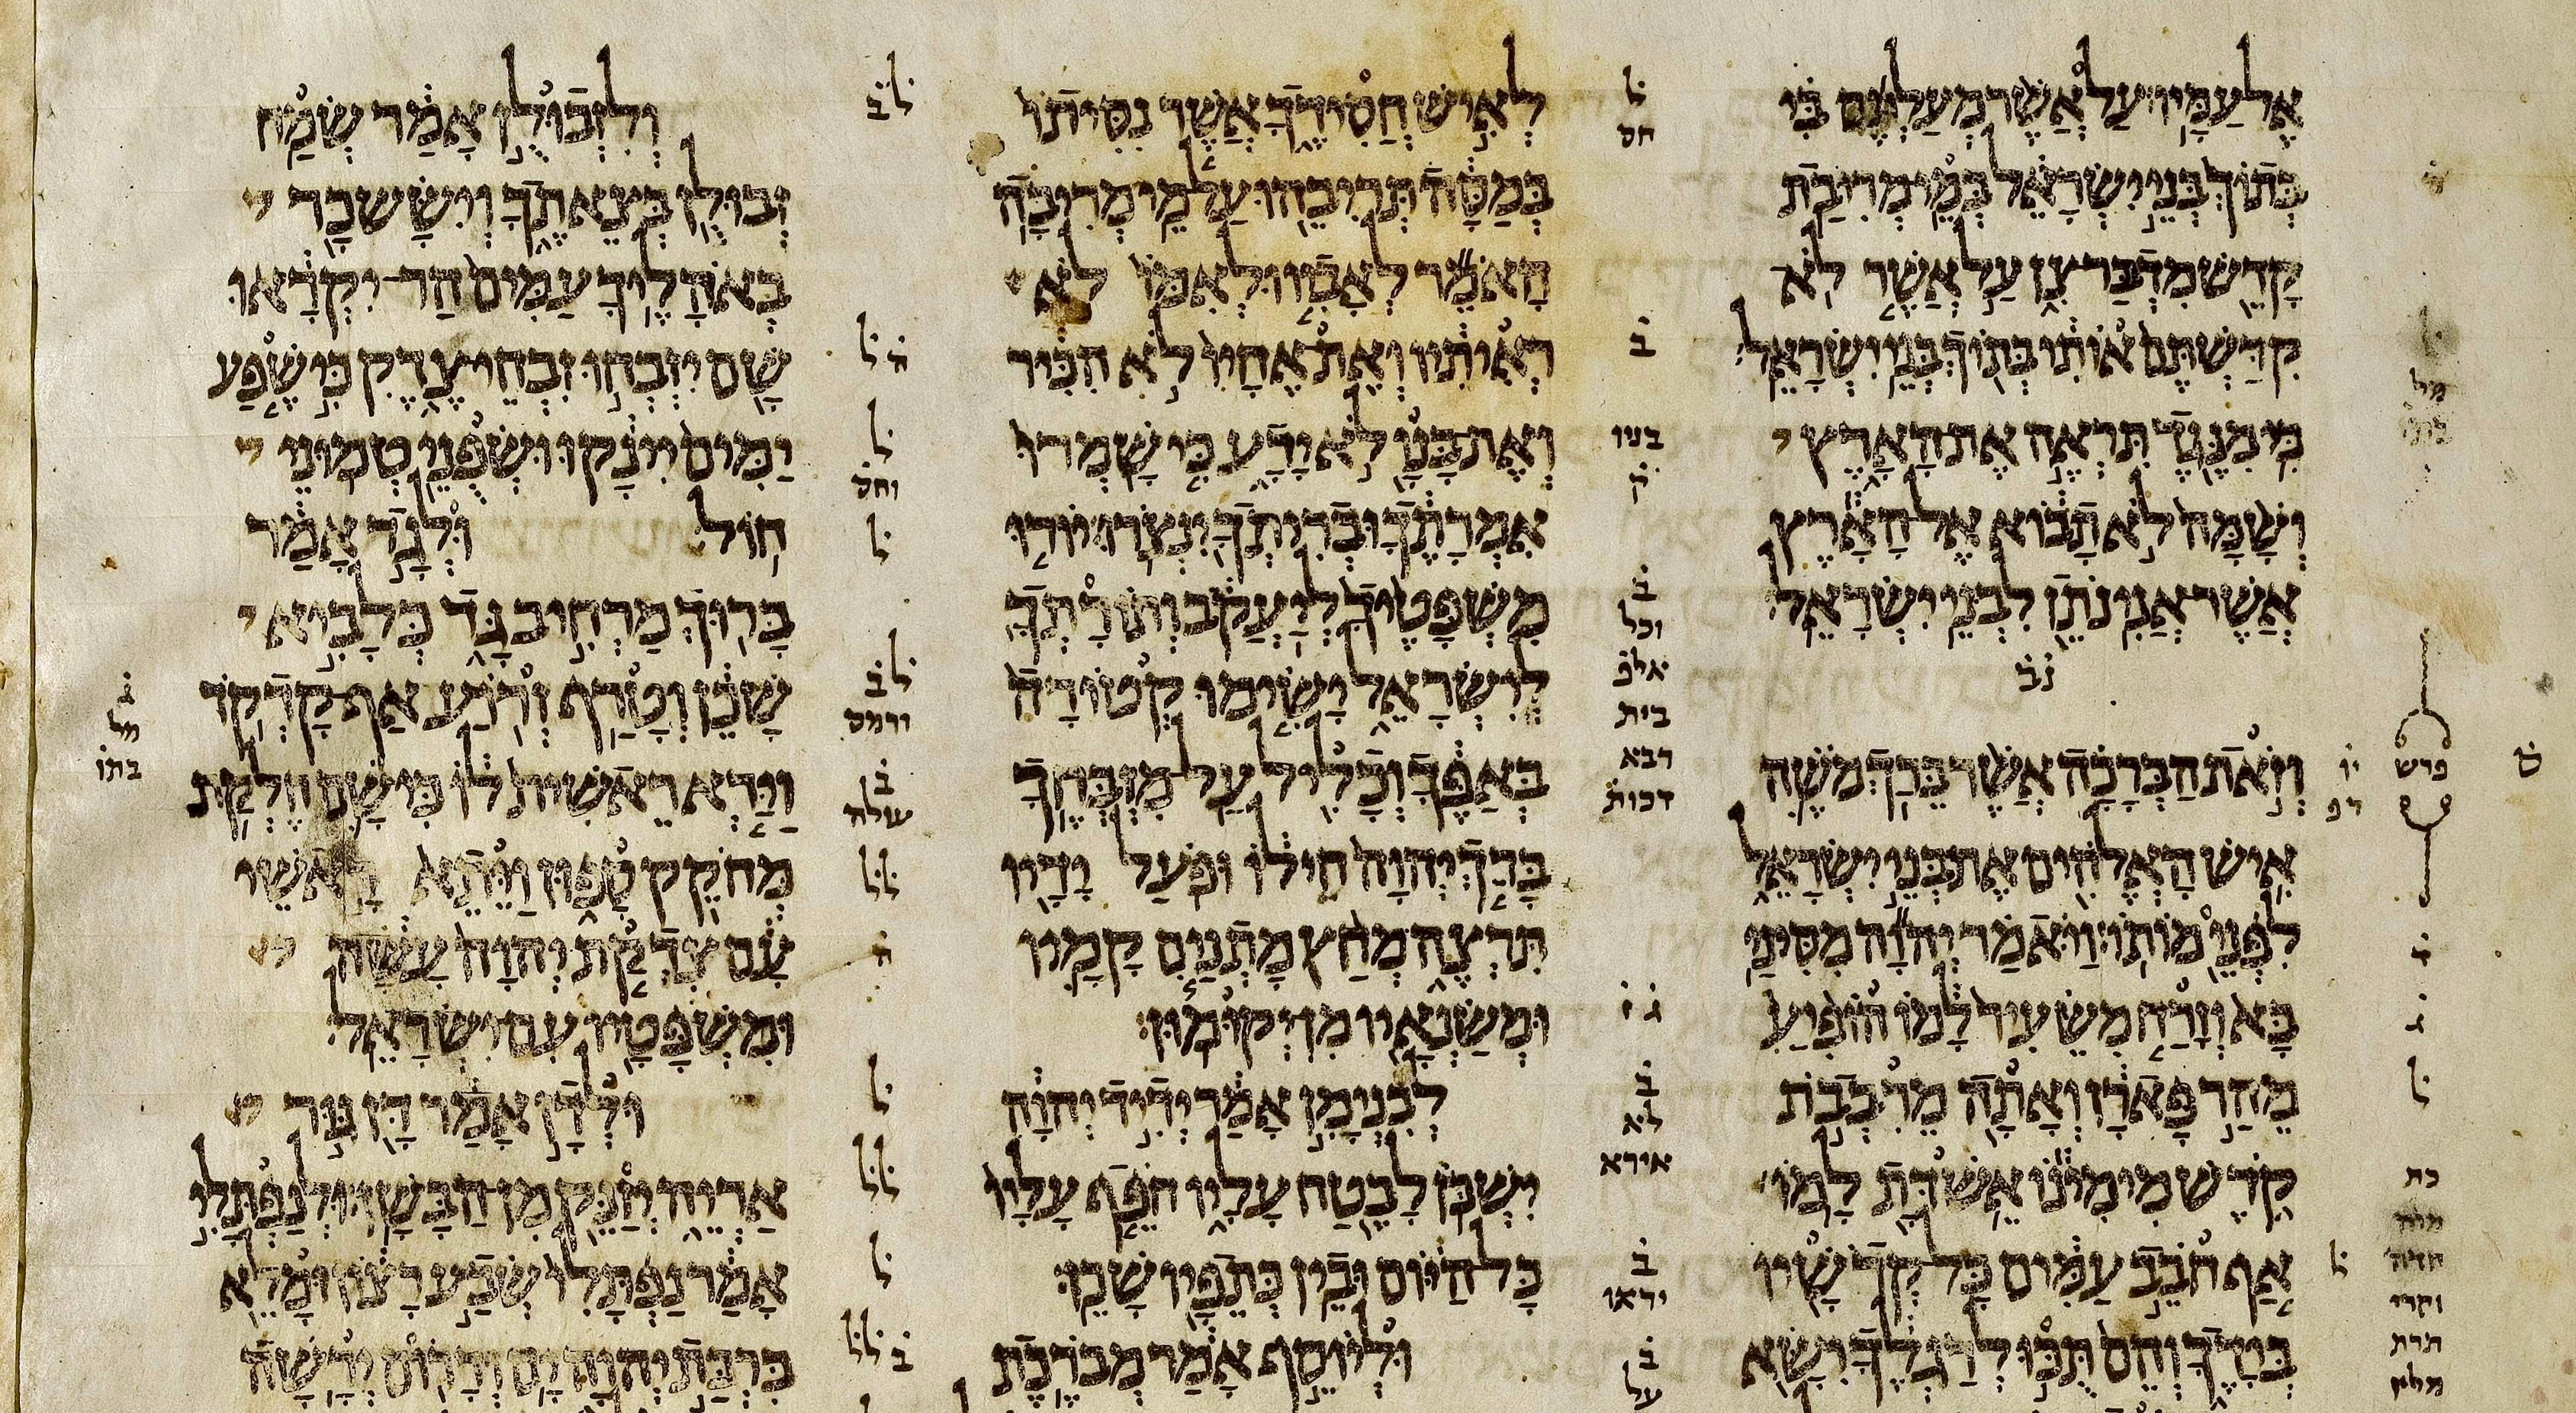 אֶל עַמָּיו עַל אֲשֶׁר מְעַלְתֶּם בִּי
בְּתוֹךְ בְּנֵי יִשְׂרָאֵל בְּמֵי מְרִיבַת
קָדֵשׁ מִדְבַּר צִן עַל אֲשֶׁר לֹא
קִדַּשְׁתֶּם אוֹתִי בְּתוֹךְ בְּנֵי יִשְׂרָאֵל
כִּי מִנֶּגֶד תִּרְאֶה אֶת הָאָרֶץ
וְשָׁמָּה לֹא תָבוֹא אֶל הָאָרֶץ
אֲשֶׁר אֲנִי נֹתֵן לִבְנֵי יִשְׂרָאֵל
נב
וְזֹאת הַבְּרָכָה אֲשֶׁר בֵּרַךְ מֹשֶׁה
אִישׁ הָאֱלֹהִים אֶת בְּנֵי יִשְׂרָאֵל
לִפְנֵי מוֹתוֹ׃ וַיֹּאמַר יְהוָה מִסִּינַי
בָּא וְזָרַח מִשֵּׂעִיר לָמוֹ הוֹפִיעַ
מֵהַר פָּארָן וְאָתָה מֵרִבְבֹת
קֹדֶשׁ מִימִינוֹ אֵשׁדָּת לָמוֹ׃
אַף חֹבֵב עַמִּים כָּל קְדֹשָׁיו
בְּיָדֶךָ וְהֵם תֻּכּוּ לְרַגְלֶךָ יִשָּׂא
פרש
בנו
ק
וכל
אלפ
בית
רבא
דכות
לא
אירא
יראו
על
לְאִישׁ חֲסִידֶךָ אֲשֶׁר נִסִּיתוֹ
בְּמַסָּה תְּרִיבֵהוּ עַל מֵי מְרִיבָה׃
הָאֹמֵר לְאָבִיו וּלְאִמּוֹ לֹא
רְאִיתִיו וְאֶת אֶחָיו לֹא הִכִּיר
וְאֶת בָּנָו לֹא יָדָע כִּי שָׁמְרוּ
אִמְרָתֶךָ וּבְרִיתְךָ יִנְצֹרוּ׃ יוֹרוּ
מִשְׁפָּטֶיךָ לְיַעֲקֹב וְתוֹרָתְךָ
לְיִשְׂרָאֵל יָשִׂימוּ קְטוֹרָה
בְּאַפֶּךָ וְכָלִיל עַל מִזְבְּחֶךָ׃
בָּרֵךְ יְהוָה חֵילוֹ וּפֹעַל יָדָיו
תִּרְצֶה מְחַץ מָתְנַיִם קָמָיו
וּמְשַׂנְאָיו מִן יְקוּמוּן׃
לְבִנְיָמִן אָמַר יְדִיד יְהוָה
יִשְׁכֹּן לָבֶטַח עָלָיו חֹפֵף עָלָיו
כָּל הַיּוֹם וּבֵין כְּתֵפָיו שָׁכֵן׃
וּלְיוֹסֵף אָמַר מְבֹרֶכֶת
וחס
ורמס
עולה
וְלִזְבוּלֻן אָמַר שְׂמַח
זְבוּלֻן בְּצֵאתֶךָ וְיִשָּׂשכָר
בְּאֹהָלֶיךָ׃ עַמִּים הַר יִקְרָאוּ
שָׁם יִזְבְּחוּ זִבְחֵי צֶדֶק כִּי שֶׁפַע
יַמִּים יִינָקוּ וּשְׂפֻנֵי טְמוּנֵי
חוֹל׃ וּלְגָד אָמַר
בָּרוּךְ מַרְחִיב גָּד כְּלָבִיא
שָׁכֵן וְטָרַף זְרוֹעַ אַף קָדְקֹד׃
וַיַּרְא רֵאשִׁית לוֹ כִּי שָׁם חֶלְקַת
מְחֹקֵק סָפוּן וַיֵּתֵא רָאשֵׁי
עָם צִדְקַת יְהוָה עָשָׂה
וּמִשְׁפָּטָיו עִם יִשְׂרָאֵל׃
וּלְדָן אָמַר דָּן גּוּר
אַרְיֵה יְזַנֵּק מִן הַבָּשָׁן׃ וּלְנַפְתָּלִי
אָמַר נַפְתָּלִי שְׂבַע רָצוֹן וּמָלֵא
בִּרְכַּת יְהוָה יָם וְדָרוֹם יְרָשָׁה׃